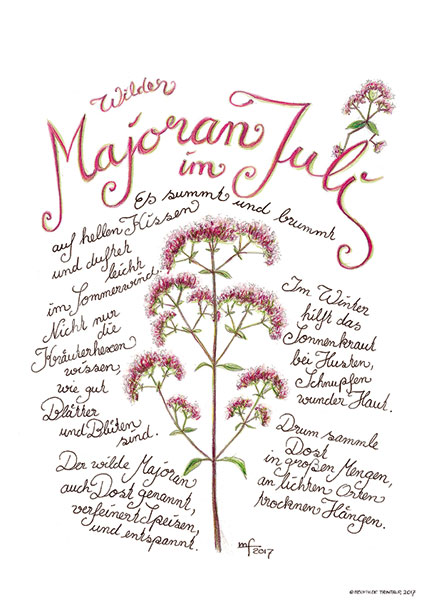 Wilder
Majoran
im Juli
Es summt und brummt
auf hellen Kissen
und duftet
leicht
im Sommerwind.
Nicht nur
die
Kräuterhexen
wissen,
wie gut
Blätter
und Blüten
sind.
Der wilde Majoran
auch Dost genannt,
verfeinert Speisen,
und entspannt.
Im Winter
hilft das
Sonnenkraut
bei Husten,
Schnupfen
wunder Haut.
Drum sammle
Dost
in großen Mengen,
an lichten Orten
trocknen Hängen.
mf
2017
2017